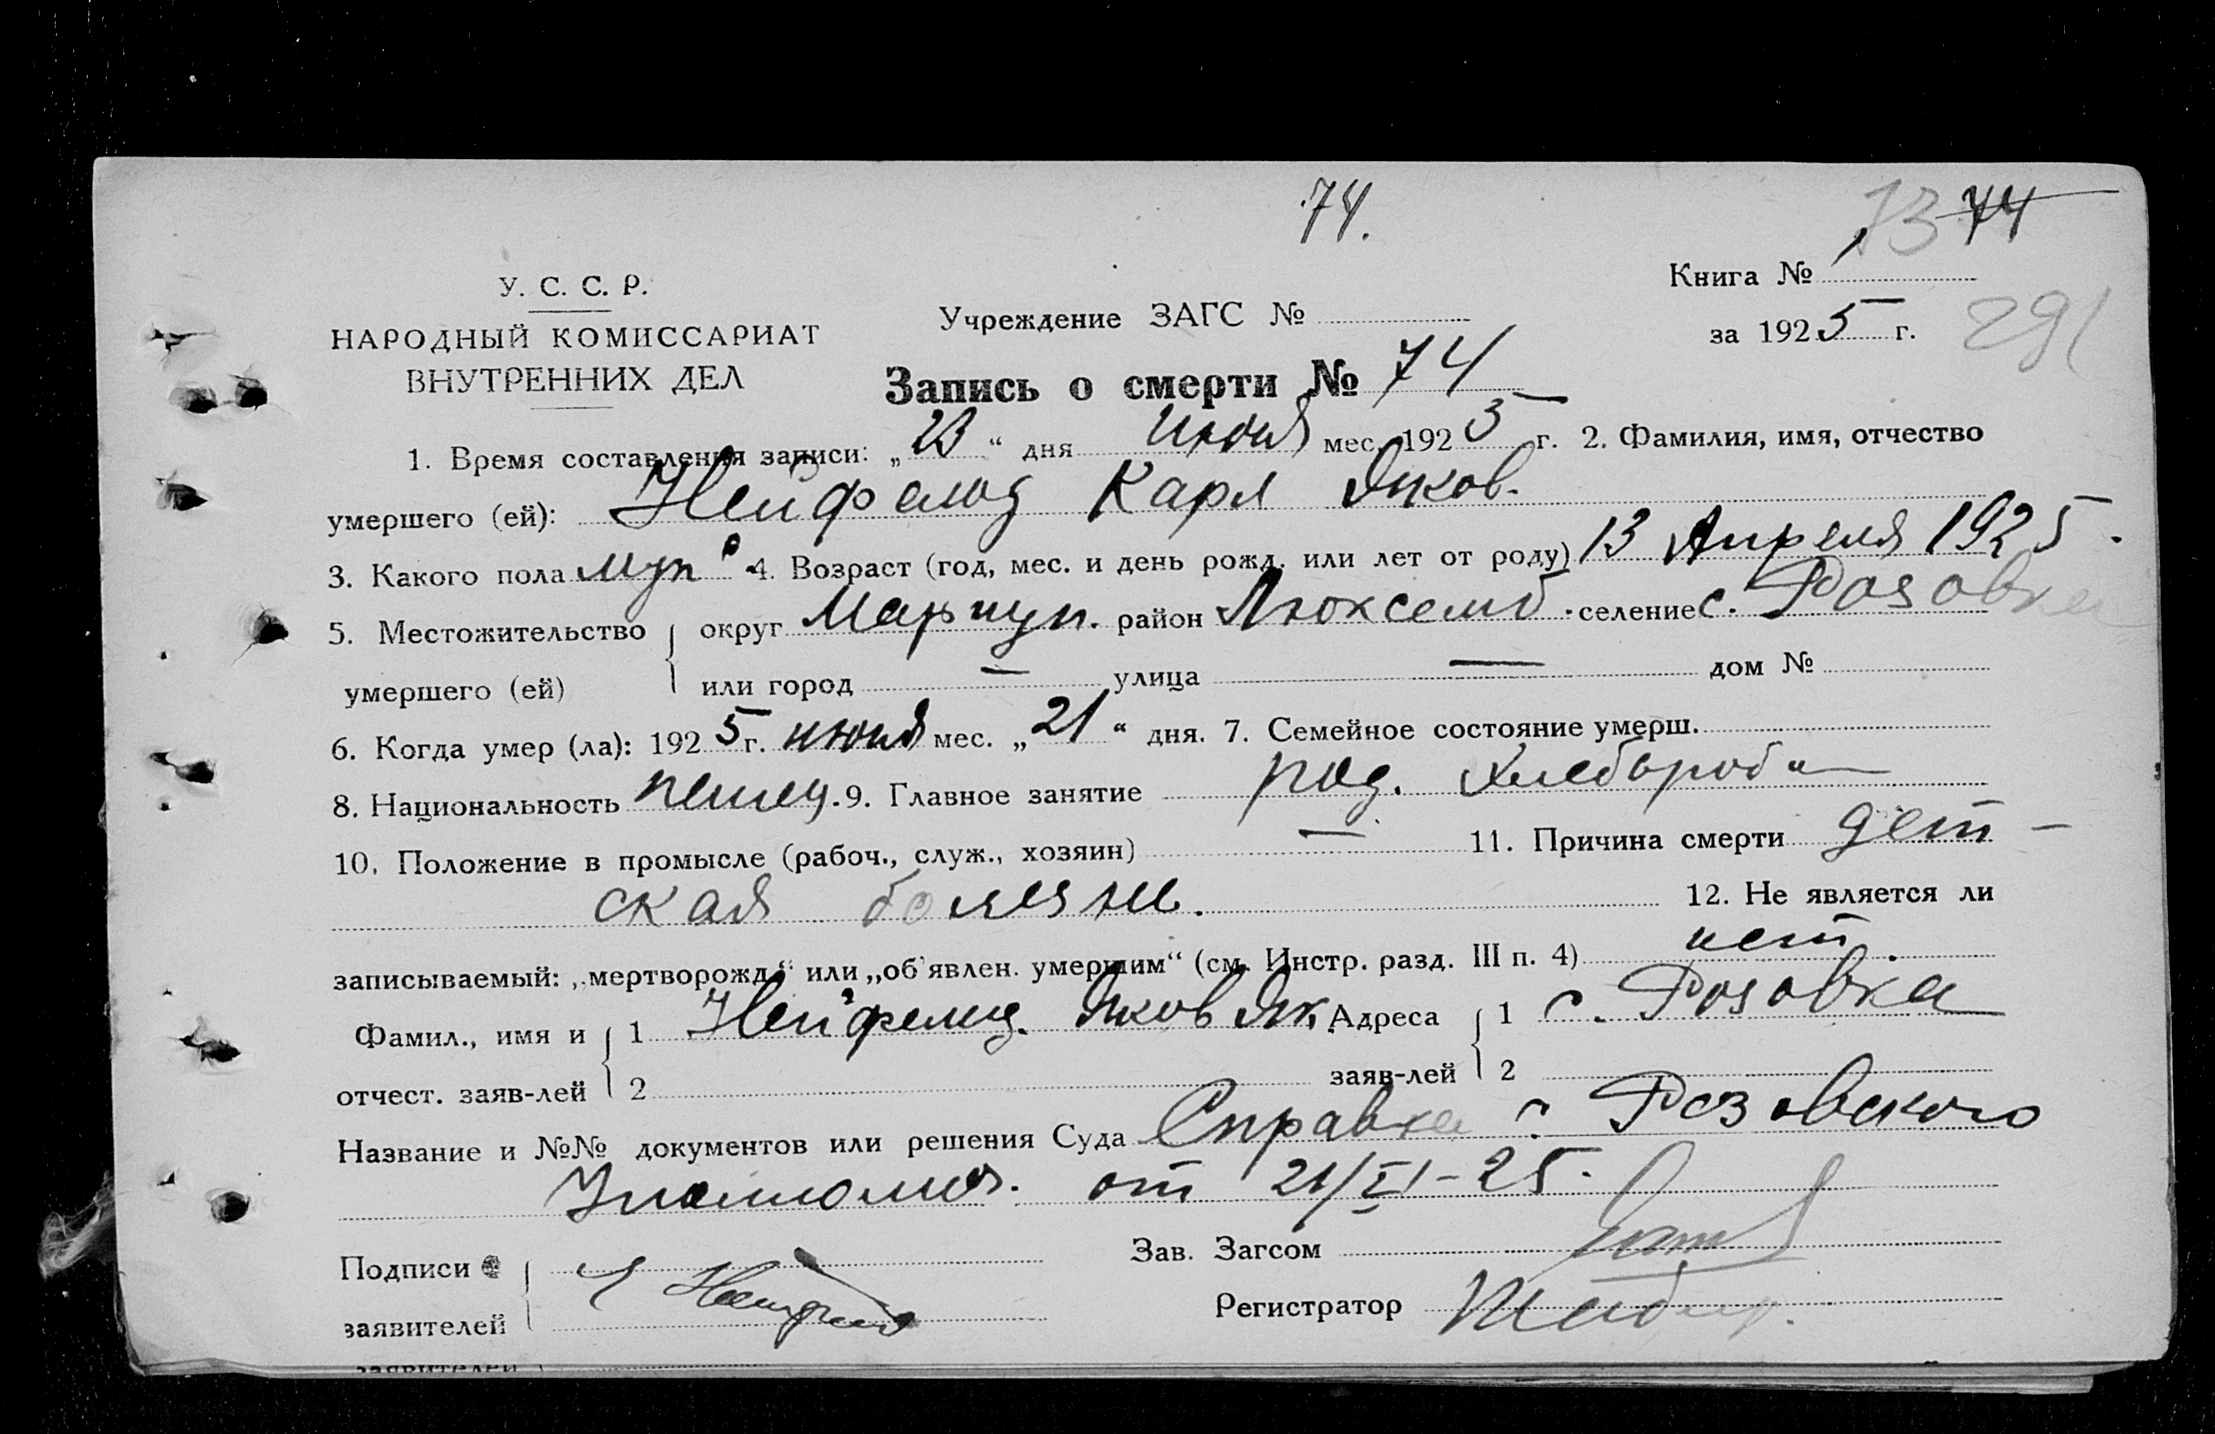 74.
73 74
У. С. С. Р.
НАРОДНЫЙ КОМИССАРИАТ
ВНУТРЕННИХ ДЕЛ
Учреждение ЗАГС №
Книга № 1
за 1925 г. 291
Запись о смерти № 74
1. Время составления записи: „23“ дня июня мес. 1925 г. 2. Фамилия, имя, отчество
умершего (ей): Нейфельд Карл Яков.
3. Какого пола муж 4. Возраст (год, мес. и день рожд. или лет от роду) 13 Апреля 1925.
5. Местожительство умершего (ей) { округ Мариуп. район Люксемб. селение с. Розовка
или город — улица — дом №
6. Когда умер (ла): 1925 г. июня мес. „21“ дня. 7. Семейное состояние умерш.
8. Национальность немец. 9. Главное занятие род. хлебороб
10. Положение в промысле (рабоч., служ., хозяин) — 11. Причина смерти дет-
ская болезнь. 12. Не является ли
записываемый: „мертворожд.“ или „об'явлен. умершим“ (см. Инстр. разд. III п. 4) нет.
Фамил., имя и отчест. заяв-лей { 1 Нейфельд. Яков Як. Адреса заяв-лей { 1 с. Розовка
2 2
Название и №№ документов или решения Суда Справка с. Розовского
от 21/VI-25.
Подписи заявителей { Я Нейфельд
Зав. Загсом
Регистратор
заявителей